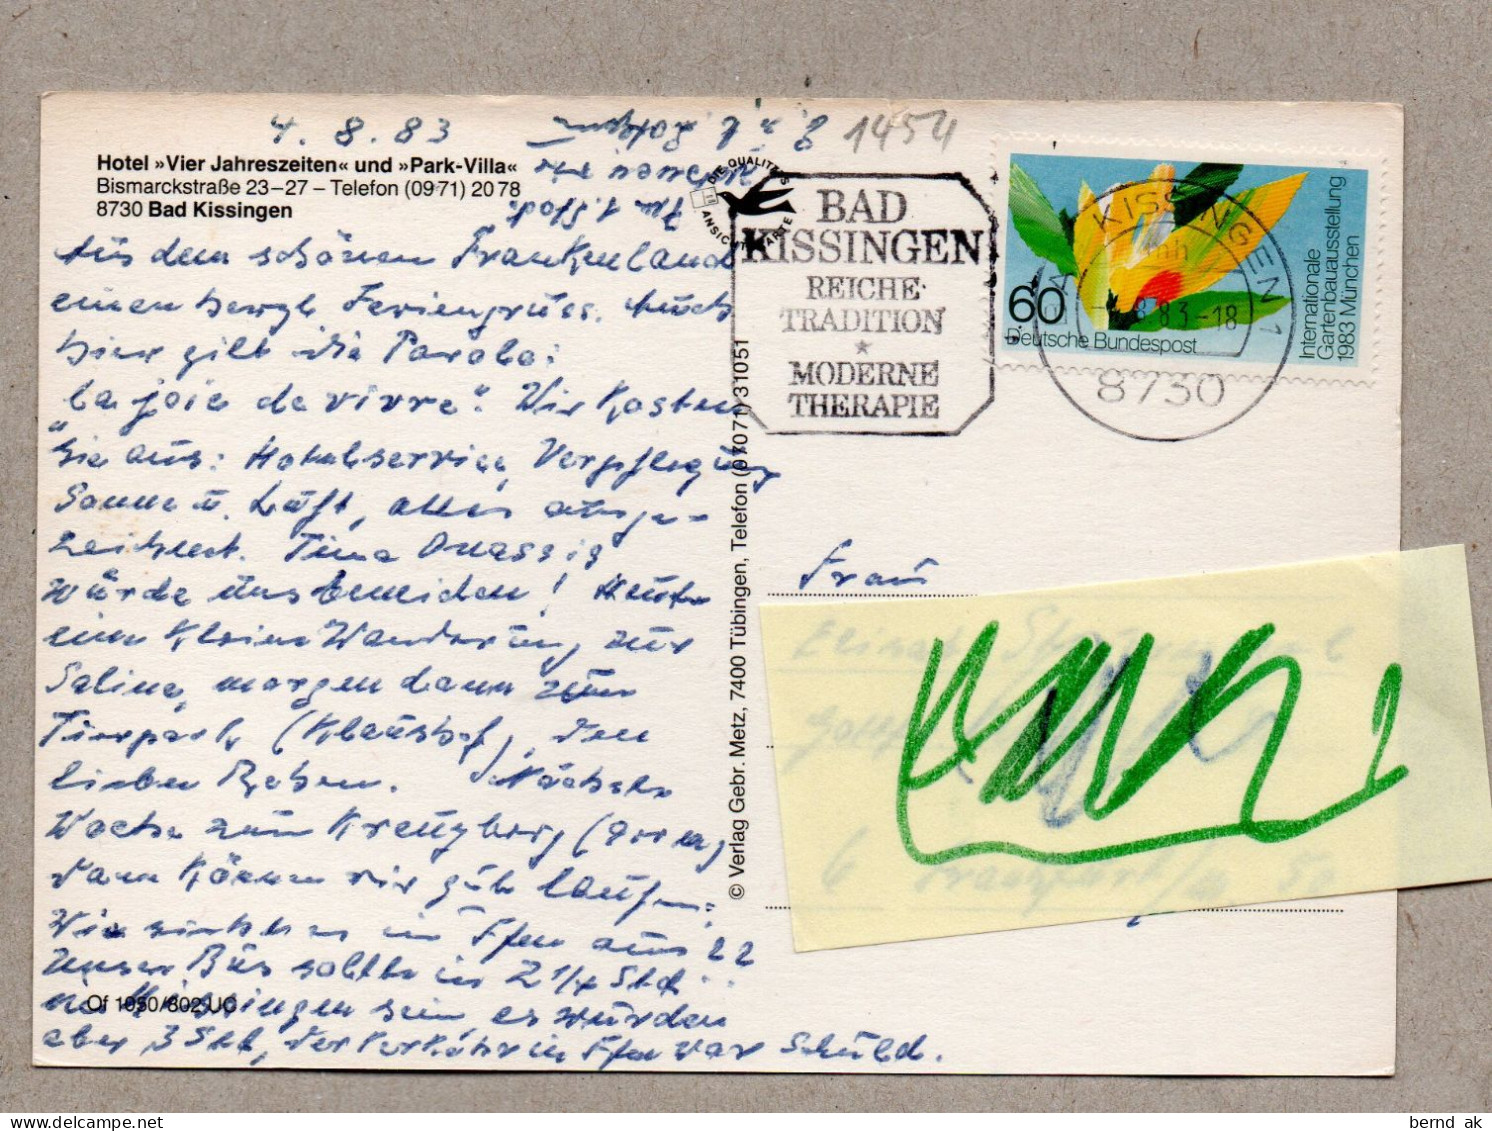 4. 8. 83
1454
Hotel »Vier Jahreszeiten« und »Park-Villa«
Bismarckstraße 23–27 – Telefon (0971) 2078
8730 Bad Kissingen
Aus dem schönen Frankenland
einen herzl. Feriengruss. Auch
hier gilt die Parole:
"la joie de vivre". Wir kosten
sie aus: Hotelservice, Verpflegung
Sonne u. Luft, alles ausge-
zeichnet. Tina Onassis
würde uns beneiden! Heute
eine kleine Wanderung zur
Saline, morgen dann zum
Tierpark (Klaushof), den
lieben Rehen. Nächste
Woche zum Kreuzberg
dann können wir gut laufen.
Wir in Ffm aus
Unser Bus sollte in 2 1/4 Std
Kissingen sein es wurden
aber 3 Std, der Verkehr in Ffm war Schuld.
Of 1050/802 UC
© Verlag Gebr. Metz, 7400 Tübingen, Telefon (07071) 31051
DIE QUALITÄTS
ANSICHTSKARTE
BAD
KISSINGEN
REICHE
TRADITION
*
MODERNE
THERAPIE
BAD KISSINGEN 1
8.83-18
8730
60
Deutsche Bundespost
Internationale
Gartenbauausstellung
1983 München
Frau
6 Frankfurt/M 50
bernd ak